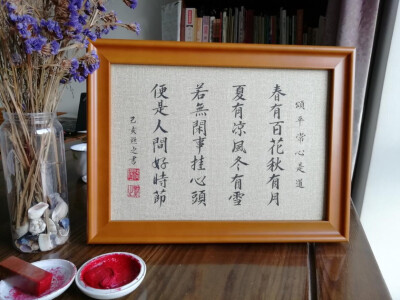 頌平常心是道
春有百花秋有月
夏有凉風冬有雪
若無閑事挂心頭
便是人間好時節
己亥
書